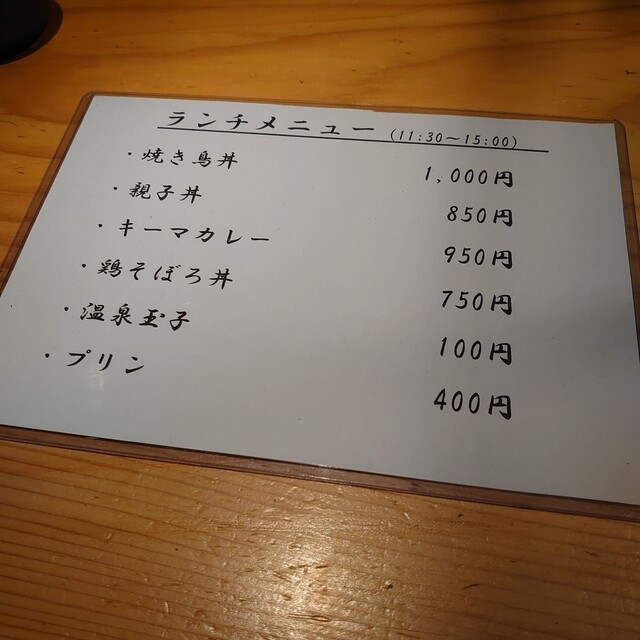 ランチメニュー (11:30～15:00)
・焼き鳥丼 1,000円
・親子丼 850円
・キーマカレー 950円
・鶏そぼろ丼 750円
・温泉玉子 100円
・プリン 400円